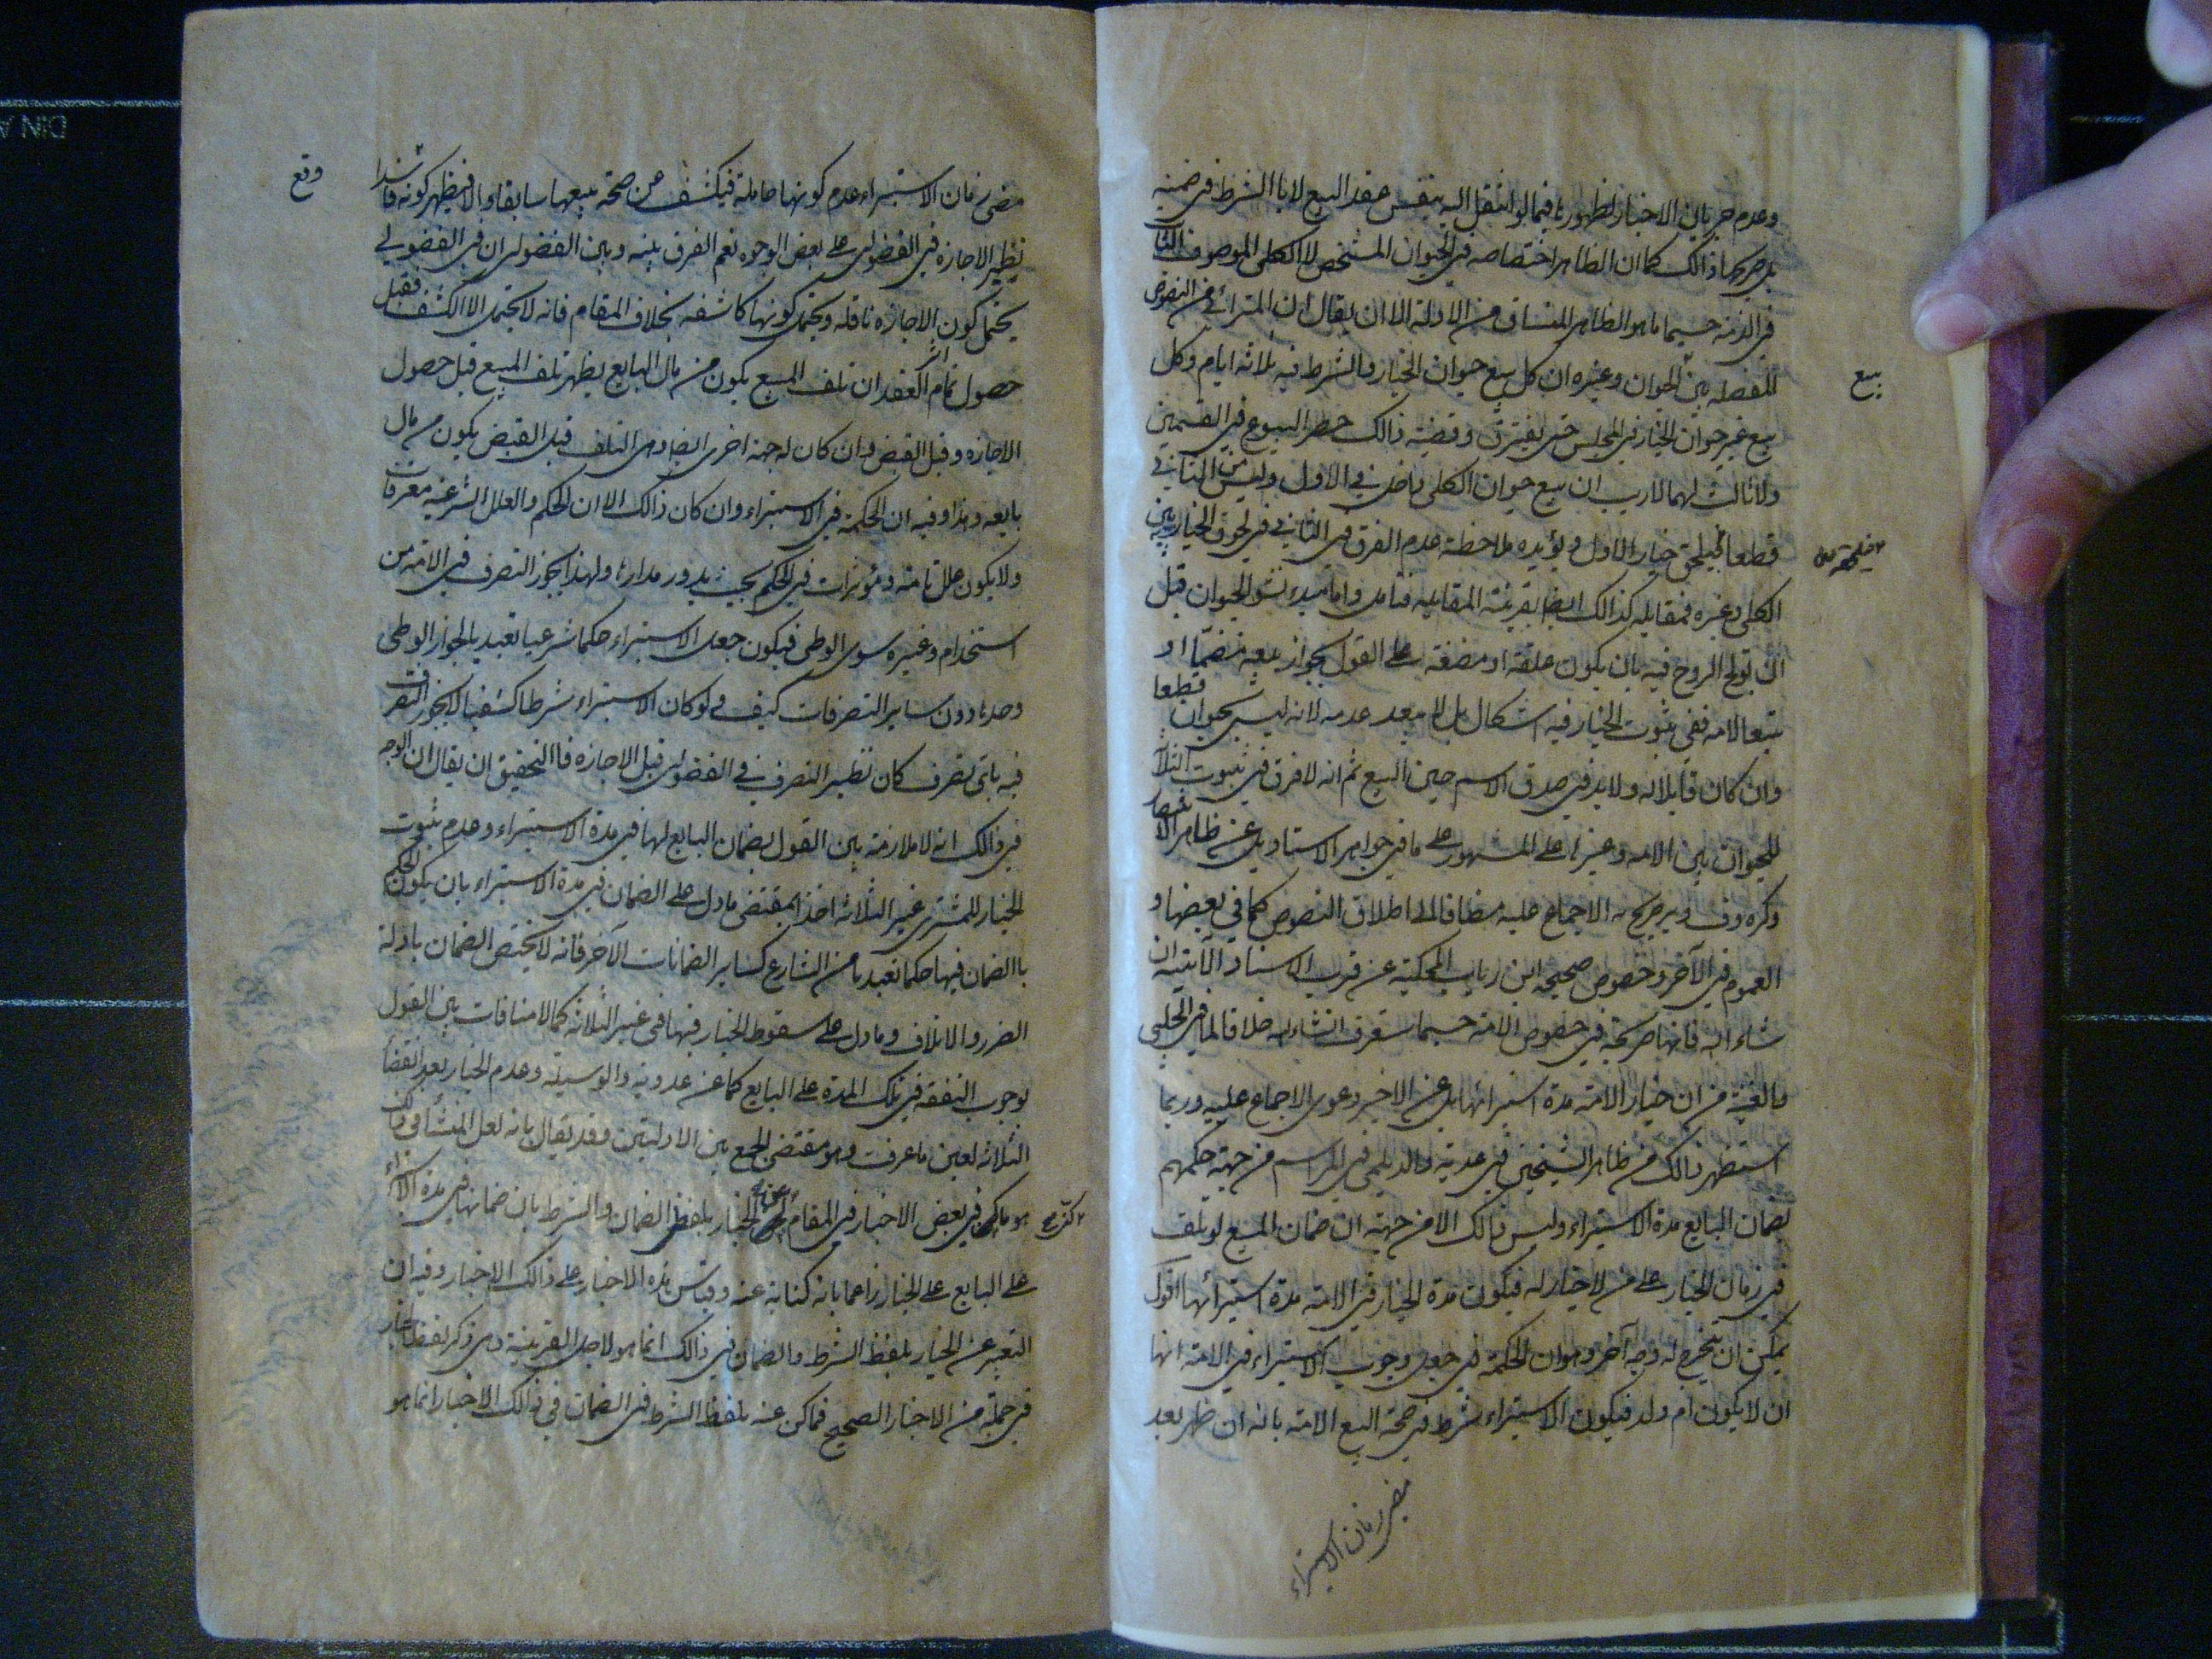 وعدم جريان الاخبار لظهورها فيما لو انتقل اليه بنفس عقد البيع لا بالشرط في ضمنه
بل صريحها ذالك كما ان الظاهر اختصاصه في الحيوان المشخص لا الكلى الموصوف الثابت
في الذمه حسبما ما هو الظاهر المنساق من الادلة الا ان يقال ان المترائى من النصوص
المفصله بين الحيوان وغيره ان كل بيع حيوان الخيار والشرط فيه ثلاثه ايام وكل
بيع
بيع غير حيوان الخيار في المجلس حتى يفترق وقضية ذالك حصر البيوع في القسمين
ولا ثالث لهما لا ريب ان بيع حيوان الكلى داخل في الاول وليس من الثاني
قطعا فيلحق خيار الاول ويؤيده ملاحظة عدم الفرق في الثاني في لحوق الخيار بين
الكلى وغيره فمقابله كذالك ايضا بقرينة المقابله فتامل واما مبدء نشو الحيوان قبل
ان تولج الروح فيه بان يكون علقة او مضغة على القول بجواز بيعه منضما او
تبعا لامه ففي ثبوت الخيار فيه اشكال بل لا يبعد عدمه لانه ليس بحيوان قطعا
وان كان قابلا له ولا بد في صدق الاسم حين البيع ثم انه لا فرق في ثبوت الثلاثه
للحيوان بين الامه وغيرها على المشهور على ما في جواهر الاستاد بل عن ظاهر الانتصار
وكره وف وير صريحه الاجماع عليه مضافا الى اطلاق النصوص كما في بعضها و
العموم في الآخر وخصوص صحيحه ابن رياب المحكية عن قرب الاسناد الآتية ان
شاء الله فانها صريحة في خصوص الامة حسبما ستعرف انشاء الله خلافا لما في الحلبي
والغنية من ان خيار الامة مدة استبرائها بل عن الاخير دعوى الاجماع عليه وربما
استظهر ذالك من ظاهر الشيخين في عدية والديلمي في المراسم من جهة حكمهم
بضمان البايع مدة الاستبراء وليس ذالك الا من جهة ان ضمان المبيع لو تلف
في زمان الخيار على من لا خيار له فيكون مدة الخيار في الامة مدة استبرائها اقول
يمكن ان يخرج له وجه آخر وهو ان الحكمة في جعل وجوب الاستبراء في الامة انها
ان لا يكون ام ولد فيكون الاستبراء شرط في صحة البيع الامة بانه ان ظهر بعد
مضى زمان الاستبراء
مضى زمان الاستبراء عدم كونها حاملة فيكشف عن صحة بيعها سابقا والا فيظهر كونه فاسدا
وقع
نظير الاجازه في الفضولى على بعض الوجوه نعم الفرق بينه وبين الفضولى ان في الفضولي
يحتمل كون الاجازه ناقله ويحتمل كونها كاشفه بخلاف المقام فانه لا يحتمل الا الكشف فقبل
حصول تمام العقد ان تلف المبيع يكون من مال البايع يظهر تلف المبيع قبل حصول
الاجازه وقبل القبض وان كان له جهة اخرى ايضا وهى التلف قبل القبض يكون من مال
بايعه هذا وفيه ان الحكمة في الاستبراء وان كان ذالك الا ان الحكم والعلل الشرعيه معرفات
ولا يكون عللا تامة ومؤثرات في الحكم بحيث يدور مدارها ولهذا يجوز التصرف في الامة من
استخدام وغيره سوى الوطى فيكون جعل الاستبراء حكما شرعيا تعبديا لجواز الوطى
وحده دون ساير التصرفات كيف ولو كان الاستبراء شرطا كشفيا لا يجوز التصرفات
فيه باى تصرف كان نظير التصرف في الفضولى قبل الاجازه فا التحقيق ان يقال ان الوجه
في ذالك انه لا ملازمة بين القول بضمان البايع لها في مدة الاستبراء وعدم ثبوت
الخيار للمشترى غير الثلاثه اخذا بمقتضى ما دل على الضمان في مدة الاستبراء بان يكون الحكم
باالضمان فيها حكما تعبديا من الشارع كساير الضمانات الآخر فانه لا يختص الضمان بادلة
الضرر والاتلاف وما دل على سقوط الخيار فيها في غير الثلاثة كما لا منافات بين القول
بوجوب النفقه في تلك المدة على البايع كما عن عدويه والوسيلة وعدم الخيار بعد انقضاء
الثلاثه لعين ما عرفت وهو مقتضى الجمع بين الادلتين وقد يقال بانه لعل المنشأ في ذالك
هو ما في بعض الاخبار في المقام الخيار بلفظ الضمان والشرط بان ضمانها في مدة الاستبراء
على البايع على الخيار زاعما بانه كناية عنه وقياس هذه الاخبار على ذالك الاخبار وفيه ان
التعبير عن الخيار بلفظ الشرط والضمان في ذالك انما هو لاجل القرينة وهى ذكر لفظ الخيار
في جملة من الاخبار الصحيح فما كن عنه بلفظ الشرط في الضمان في ذالك الاخبار انما هو